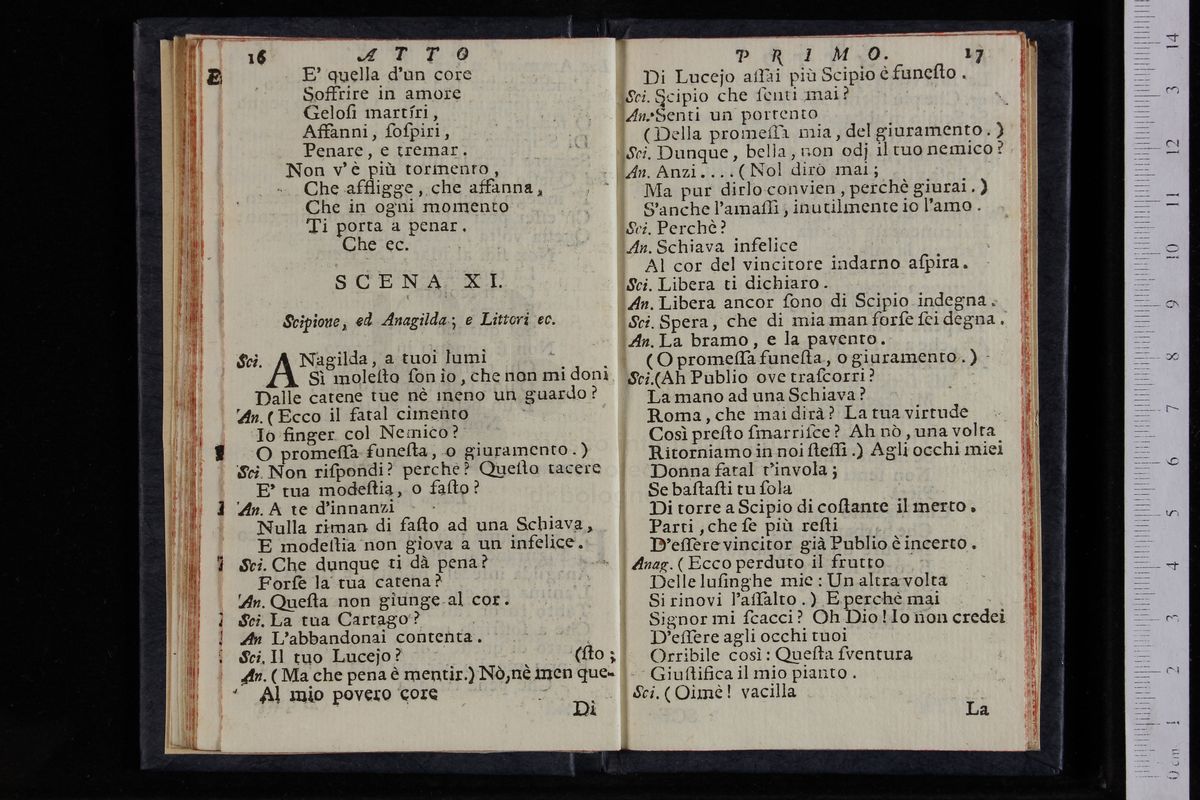 16 ATTO
E' quella d'un core
Soffrire in amore
Geloſi martíri,
Affanni, ſoſpiri,
Penare, e tremar.
Non v'è più tormento,
Che affligge, che affanna,
Che in ogni momento
Ti porta a penar.
Che ec.
SCENA XI.
Scipione, ed Anagilda; e Littori ec.
Sci. ANagilda, a tuoi lumi
Sì moleſto ſon ìo, che non mi doni
Dalle catene tue nè meno un guardo?
An. (Ecco il fatal cimento
Io finger col Nemico?
O promeſſa funeſta, o giuramento.)
Sci. Non riſpondi? perchè? Queſto tacere
E' tua modeſtia, o faſto?
An. A te d'innanzi
Nulla riman di faſto ad una Schiava,
E modeſtia non giova a un infelice.
Sci. Che dunque ti dà pena?
Forſe la tua catena?
An. Queſta non giunge al cor.
Sci. La tua Cartago?
An L'abbandonai contenta.
Sci. Il tuo Lucejo? (ſto;
An. (Ma che pena è mentir.) Nò, nè men que-
Al mio povero core
Di
PRIMO. 17
Di Lucejo aſſai più Scipio è funeſto.
Sci. Scipio che ſenti mai?
An. Senti un portento
(Della promeſſa mia, del giuramento.)
Sci. Dunque, bella, non odj il tuo nemico?
An. Anzi.... (Nol dirò mai;
Ma pur dirlo convien, perchè giurai.)
S'anche l'amaſſi, inutilmente io l'amo.
Sci. Perchè?
An. Schiava infelice
Al cor del vincitore indarno aſpira.
Sci. Libera ti dichiaro.
An. Libera ancor ſono di Scipio indegna.
Sci. Spera, che di mia man forſe ſei degna.
An. La bramo, e la pavento.
(O promeſſa funeſta, o giuramento.)
Sci. (Ah Publio ove traſcorri?
La mano ad una Schiava?
Roma, che mai dirà? La tua virtude
Così preſto ſmarriſce? Ah nò, una volta
Ritorniamo in noi ſteſſi.) Agli occhi miei
Donna fatal t'invola;
Se baſtaſti tu ſola
Di torre a Scipio di coſtante il merto.
Parti, che ſe più reſti
D'eſſere vincitor già Publio è incerto.
Anag. (Ecco perduto il frutto
Delle luſinghe mie: Un altra volta
Si rinovi l'aſſalto.) E perchè mai
Signor mi ſcacci? Oh Dio! Io non credei
D'eſſere agli occhi tuoi
Orribile così: Queſta ſventura
Giuſtifica il mio pianto.
Sci. (Oimè! vacilla
La